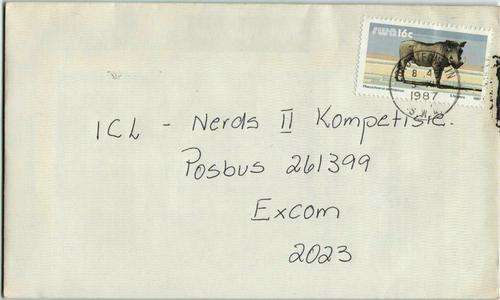 SWA 16c
8 4
1987
S.W.A.
ICL - Nerds II Kompetisie.
Posbus 261399
Excom
2023